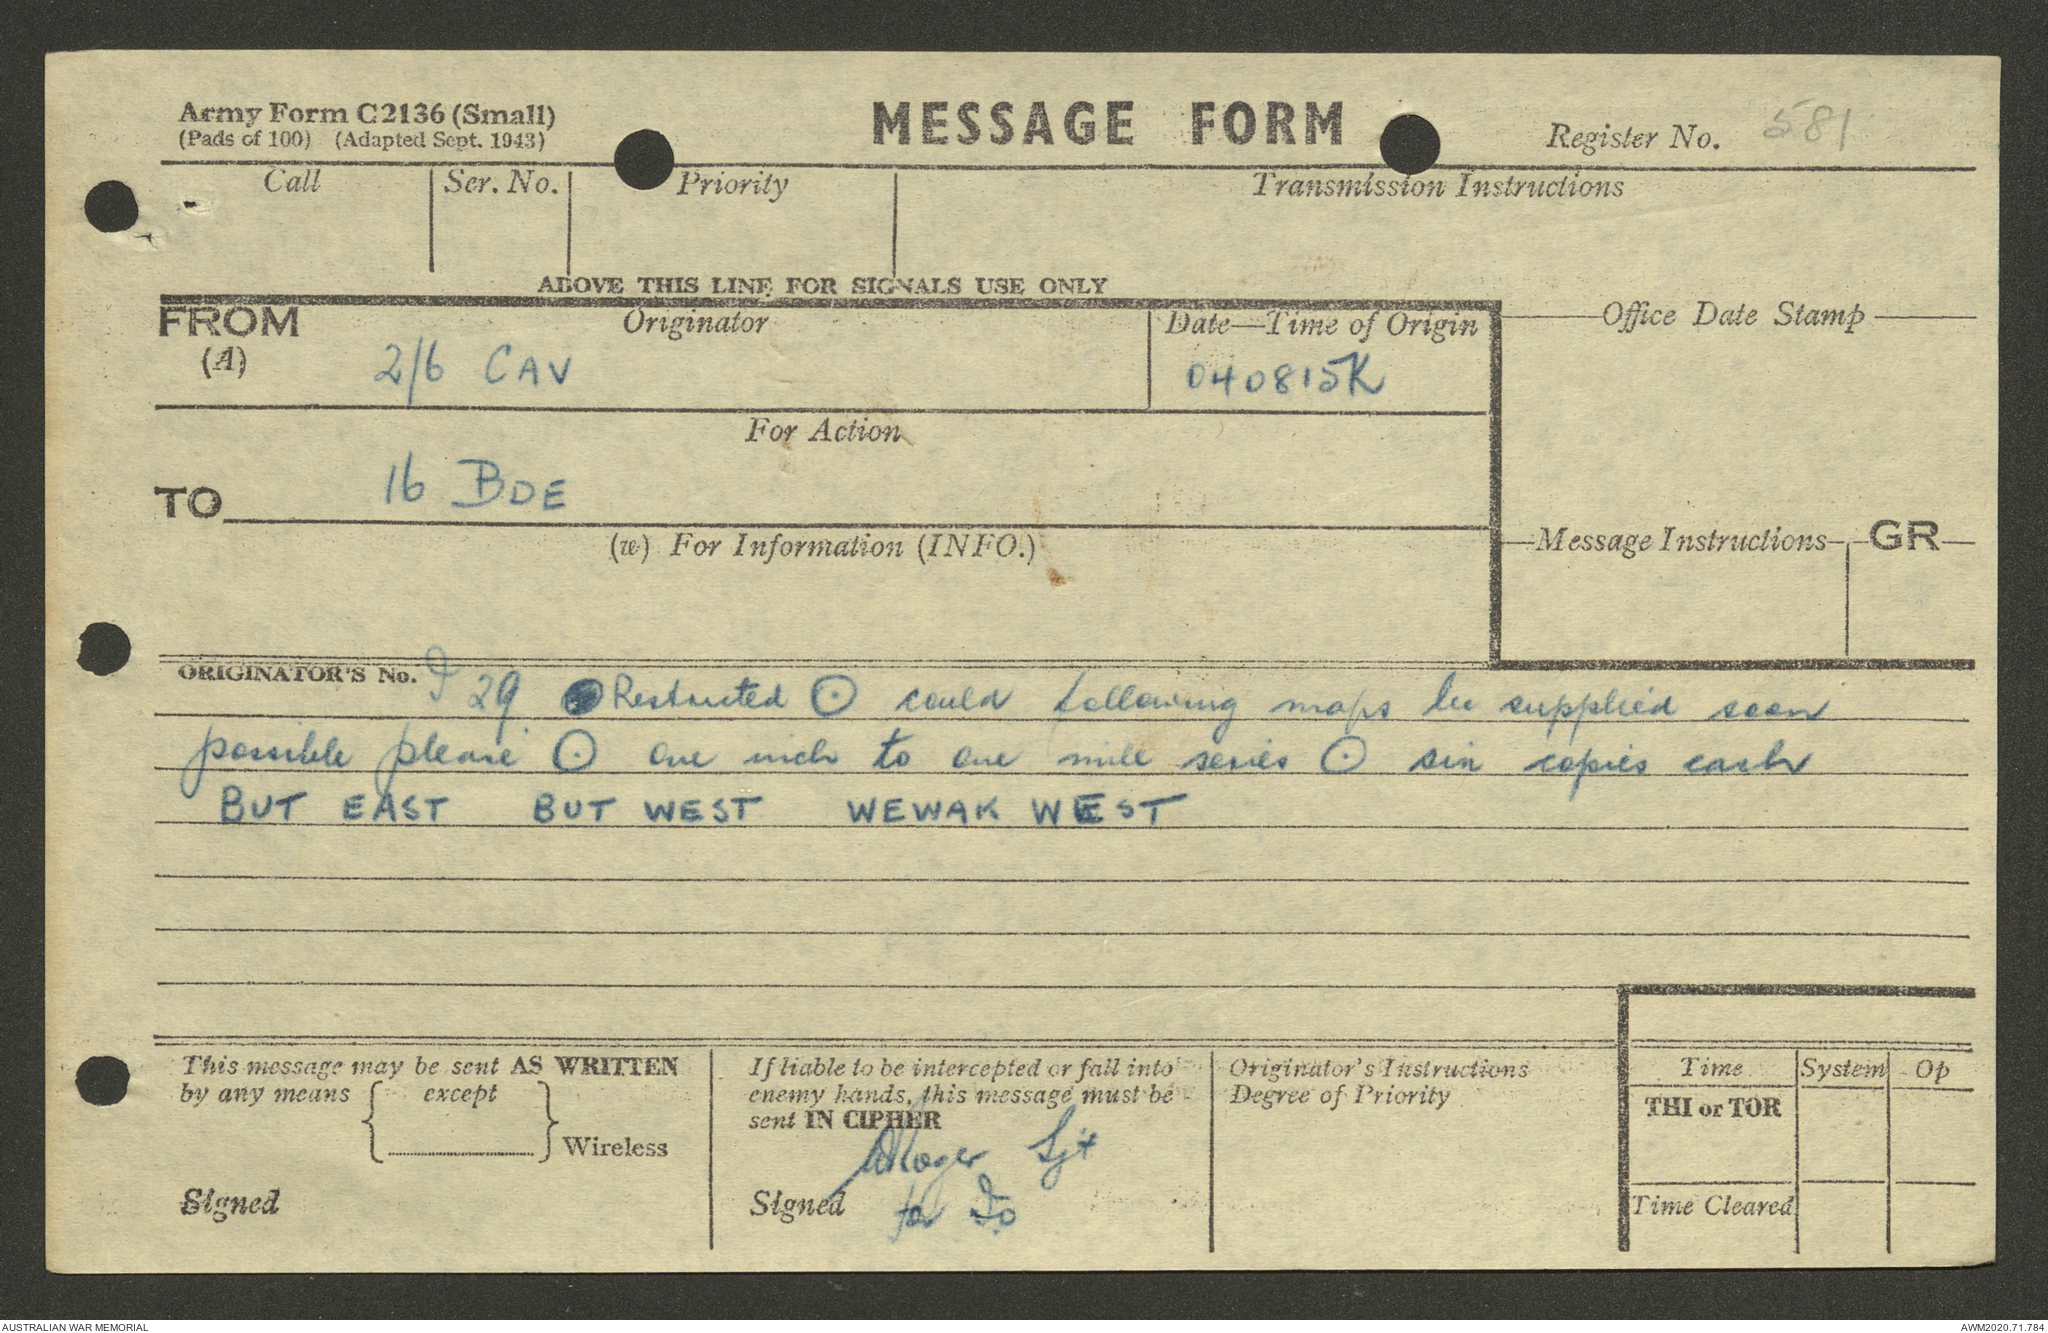 Army Form C2136 (Small)
(Pads of 100) (Adapted Sept. 1943)
MESSAGE FORM
Register No. 581
Call Ser. No. Priority Transmission Instructions
ABOVE THIS LINE FOR SIGNALS USE ONLY
FROM Originator Date—Time of Origin Office Date Stamp
(A) 2/6 CAV 040815K
For Action
TO 16 BDE
(w) For Information (INFO.) Message Instructions GR
ORIGINATOR'S No. I 29 Restricted ⊙ could following maps be supplied soon
possible please ⊙ one inch to one mile series ⊙ six copies each
BUT EAST BUT WEST WEWAK WEST
This message may be sent AS WRITTEN
by any means { except } Wireless
Signed
If liable to be intercepted or fall into
enemy hands, this message must be
sent IN CIPHER
Sjt
Signed for IO
Originator's Instructions
Degree of Priority
Time System Op
THI or TOR
Time Cleared
AUSTRALIAN WAR MEMORIAL AWM2020.71.784